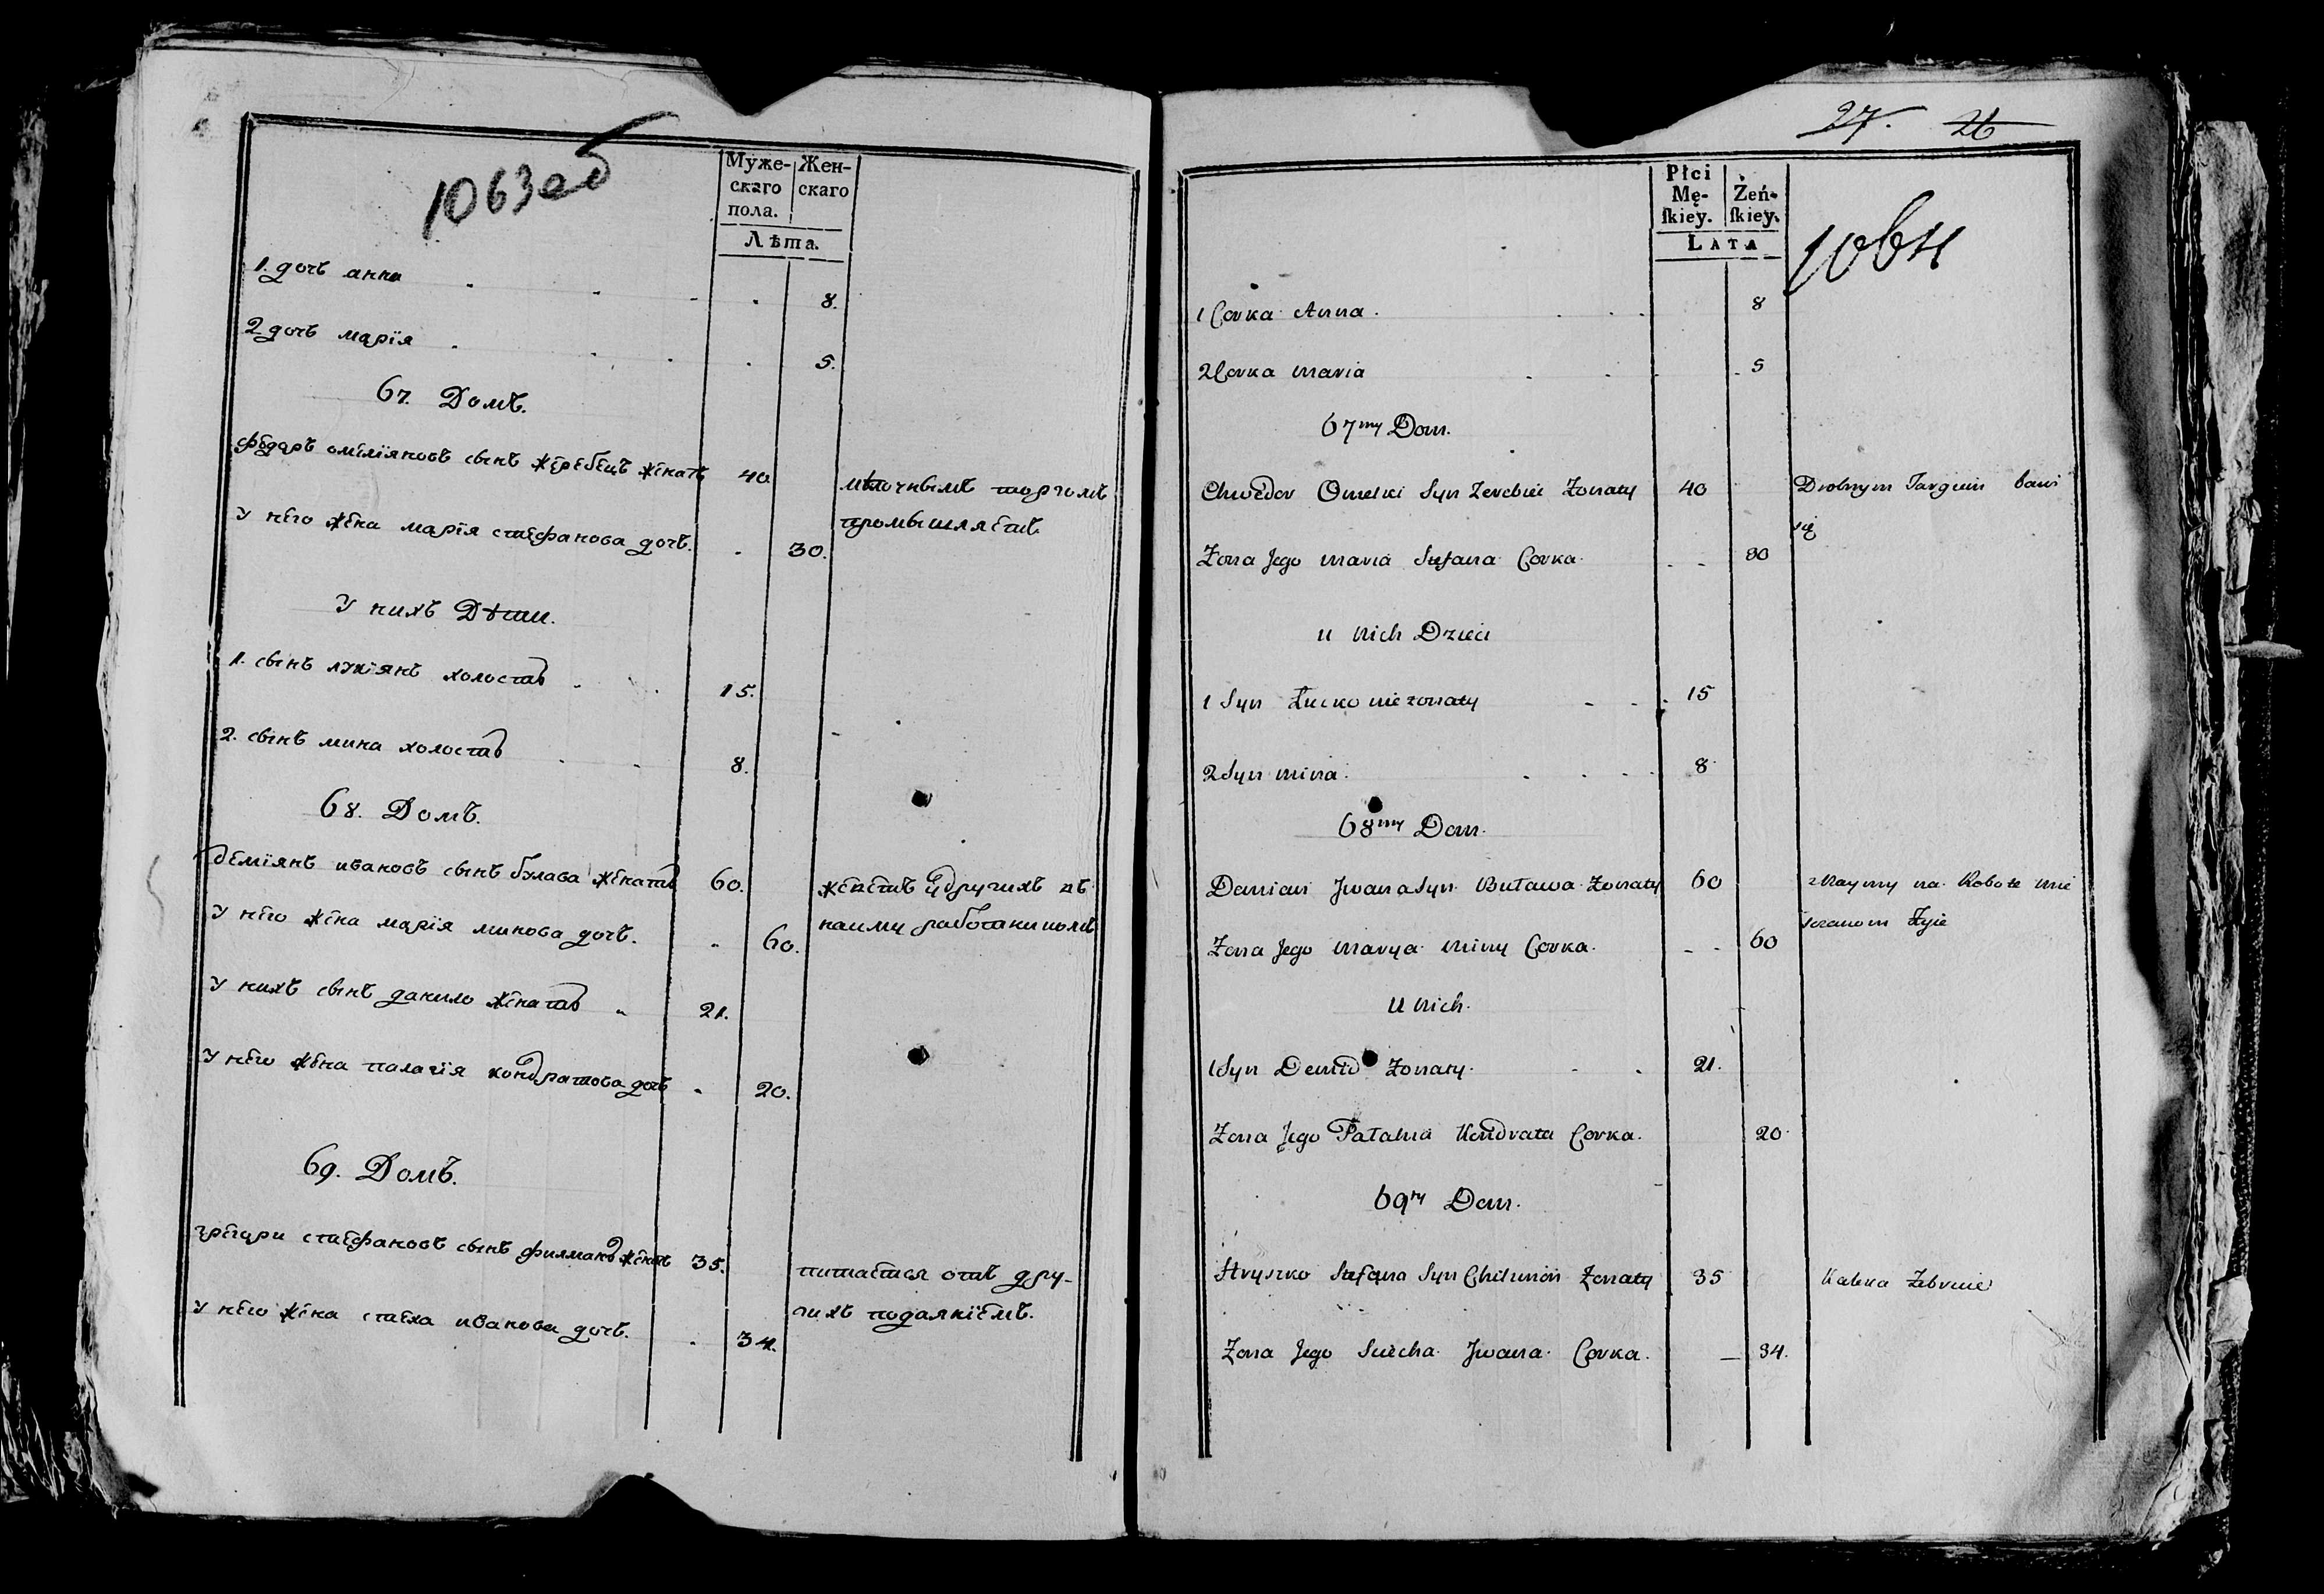 1063 об
Муже- Жен-
скаго скаго
пола.
Лѣта.
1. дочь анна 8.
2 дочь марїя 5.
67. Домъ.
фёдаръ омелїяновъ сынъ жеребецъ женатъ 40
мѣлочнымъ торгомъ
промышляетъ
У него жена марїя стефанова дочь. 30.
У нихъ Дѣти.
1. сынъ лукїянъ холостъ 15.
2. сынъ мина холостъ 8.
68. Домъ.
демїянъ ивановъ сынъ булава женатъ 60.
живетъ у другихъ въ
найму работаниномъ
У него жена марїя минова дочь. 60.
У нихъ сынъ данило женатъ 21.
У него жена палагїя кондратова дочь 20.
69. Домъ.
грегори стефановъ сынъ филманъ женатъ 35.
питается отъ дру-
гихъ подаянїемъ.
У него жена стеха иванова дочь. 34.
27. 26
Płci
Mę- Żeń-
ſkiey. ſkiey.
LATA
1064
1 Corka Anna. 8
2 Corka maria 5
67my Dom.
Chwedor Omelki Syn Zerebiec Zonaty 40
Drobnym Targiem bawi
się
Zona Jego maria Stefana Corka. 30
u nich Dzieci
1 Syn Łucko nie zonaty 15
2 Syn mina. 8
68my Dom.
Demian Jwana Syn Buława Zonaty 60
z Naymy na Robote mie
szczanom Zyie
Zona Jego marya miny Corka. 60
U nich.
1 Syn Demid Zonaty. 21.
Zona Jego Pałahia Kondrata Corka. 20
69ty Dom.
Hryszko Stefana Syn Chilmon Zonaty 35
Kaleka Zebrze
Zona Jego Stecha Jwana Corka. 34.